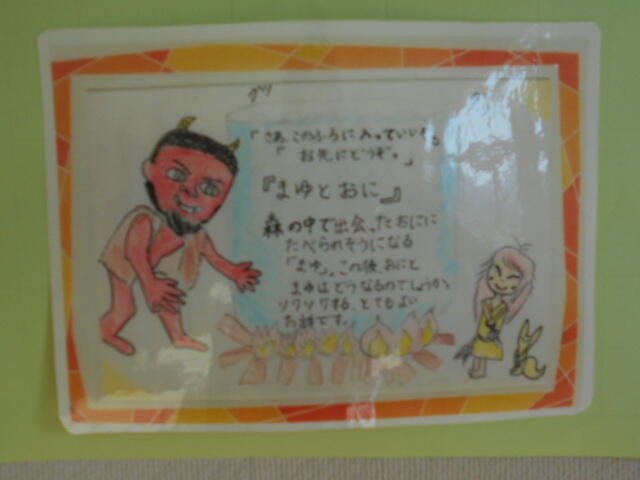 グツ
「さあ、このふろに入っていいぞ。
「お先にどうぞ。」
『まゆとおに』
森の中で出会ったおにに
たべられそうになる
「まゆ」。この後、おにと
まゆはどうなるのでしょうか。
ゾクゾクする、とてもよい
お話です。